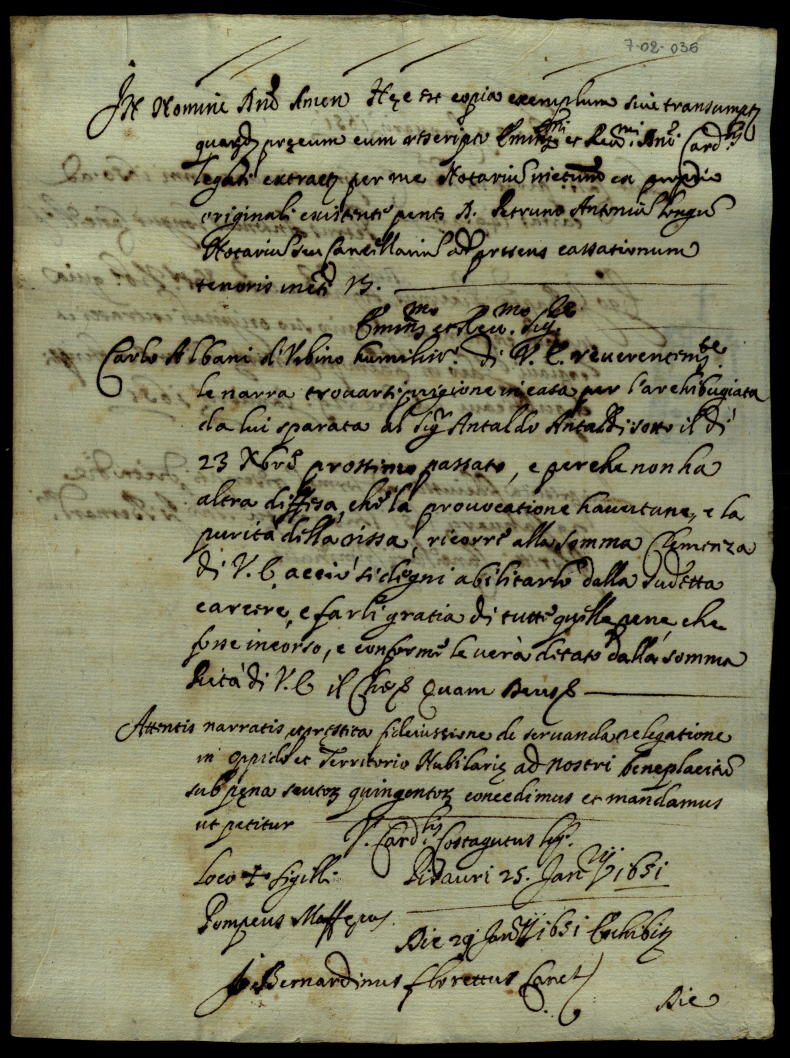 7-02-036
In Nomine Dnĩ Amen Hęc est copia exemplum sive transumptũ
quarũd precum cum rescripto Emin.mi et Rev.mi Dnĩ Card.lis
legati extractũ per me Notariũ infrũm ex proprio
originali existente penes D. Petrum Antoniũ
Notariũ seu Cancellariũ ad presens cassationum
tenoris infrĩ Vt.
Emin.mo et Rev.mo Sig.re
Carlo Albani d'Urbino humiliss.o di V. E. reverentem.te
le narra trovarsi prigione in casa per l'archibugiata
da lui sparata al Sig.r Antaldo Antaldi sotto il dì
23 Xbre prossimo passato, e perche non ha
altra diffesa, che la provocatione havutane, e la
purità della rissa, ricorre alla somma Clemenza
di V. E. acciò si degni abilitarlo dalla sudetta
carcere, e farli gratia di tutte quelle pene che
fosse incorso, e conforme le verà ditato dalla somma
Pietà di V. E. il Che Quam Deus
Attentis narratis, prestita fideiussione de servanda relegatione
in oppido et Territorio Nubilarię ad nostri beneplacitũ
sub pęna scutor. quingentor. concedimus et mandamus
ut petitur V. Card.lis Costagutus leg.
Loco + Sigilli Pisauri 25. Jan.rij 1651
Pompeus
Die 29 Jan.rij 1651 Exhibit.
Bernardinus Florettus Canc.
Die